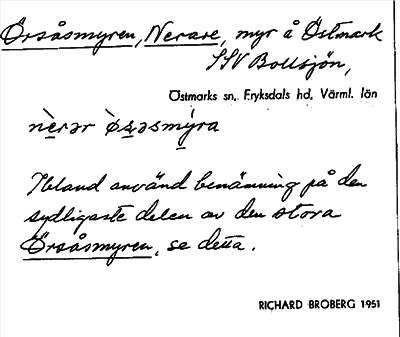 Örsåsmyren, Nerare, myr å Östmark
SSV Bollsjön,
Östmarks sn. Fryksdals hd. Värml. län
Ibland använd benämning på den
sydligaste delen av den stora
Örsåsmyren, se detta.
RICHARD BROBERG 1951